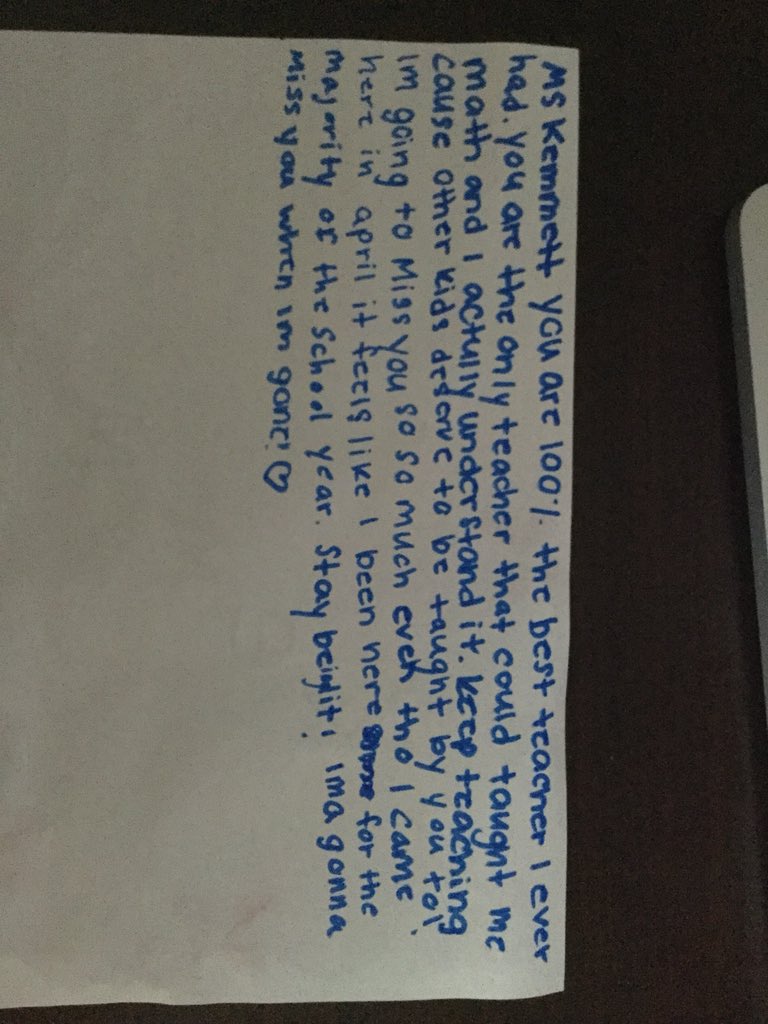 Ms Kemmett you are 100% the best teacher I ever
had. you are the only teacher that could taught me
math and I actully understand it. keep teaching
cause other kids deserve to be taught by you to!
Im going to Miss you so so much even tho I came
here in april it feels like I been here for the
majority of the school year. Stay being lit! Ima gonna
Miss you when im gone! ♡